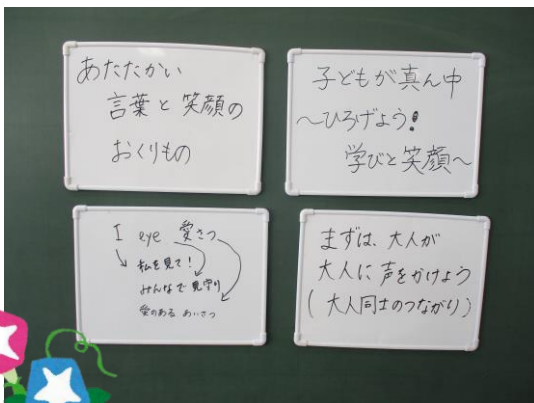 あたたかい
言葉と笑顔の
おくりもの
子どもが真ん中
～ひろげよう！
学びと笑顔～
I eye 愛さつ
私を見て！
みんなで見守り
愛のある あいさつ
まずは、大人が
大人に声をかけよう
(大人同士のつながり)